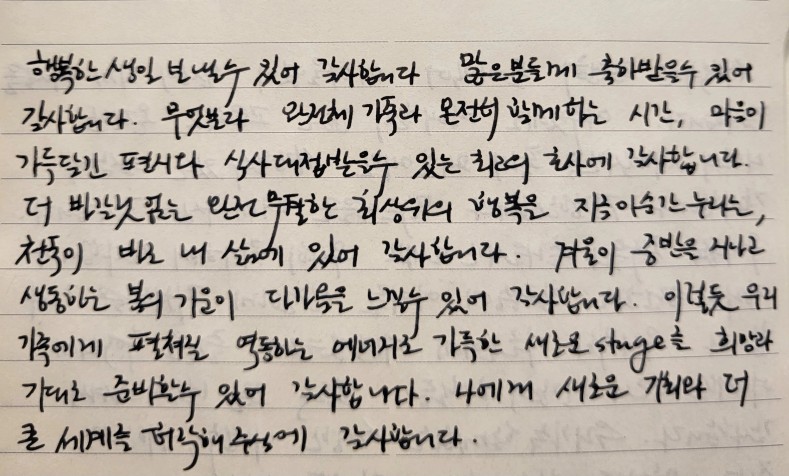 행복한 생일 보낼수 있어 감사합니다 많은분들께 축하받을수 있어
감사합니다. 무엇보다 완전체 가족과 온전히 함께하는 시간, 마음이
가득담긴 편지와 식사대접받을수 있는 최고의 호사에 감사합니다.
더 바랄것 없는 완전무탈한 최상위의 행복을 지금이순간 누리는,
천복이 바로 내 삶에 있어 감사합니다. 겨울이 중반을 지나고
생동하는 봄의 기운이 다가옴을 느낄수 있어 감사합니다. 이렇듯 우리
가족에게 펼쳐질 역동하는 에너지로 가득한 새로운 stage를 희망과
기대로 준비할수 있어 감사합니다. 나에게 새로운 기회와 더
큰 세계를 허락해주심에 감사합니다.